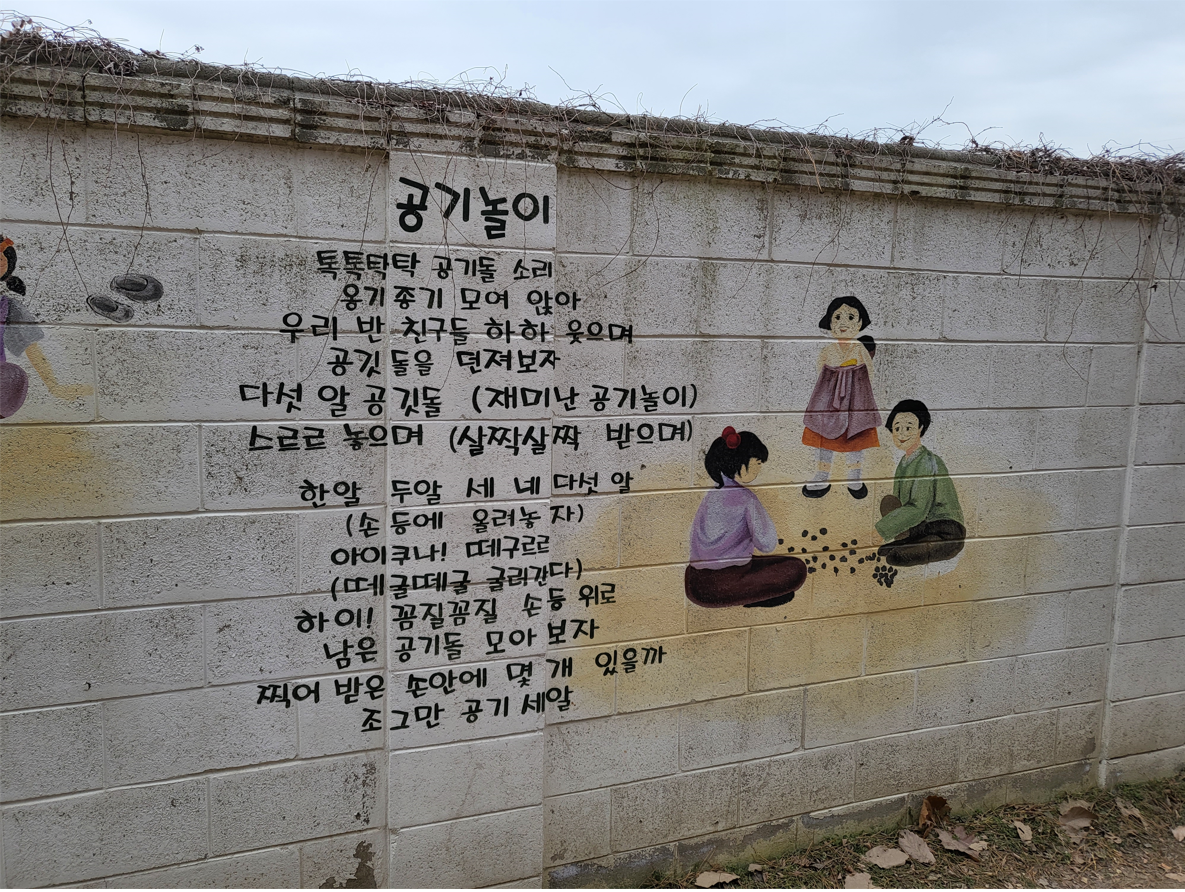 공기놀이
톡톡탁탁 공기돌 소리
옹기종기 모여 앉아
우리 반 친구들 하하 웃으며
공깃돌을 던져보자
다섯 알 공깃돌 (재미난 공기놀이)
스르르 놓으며 (살짝살짝 받으며)
한알 두알 세 네 다섯 알
(손 등에 올려놓자)
아이쿠나! 떼구르르
(떼굴떼굴 굴러간다)
하이! 꼼질꼼질 손등 위로
남은 공기돌 모아 보자
찍어 받은 손안에 몇 개 있을까
조그만 공기 세알